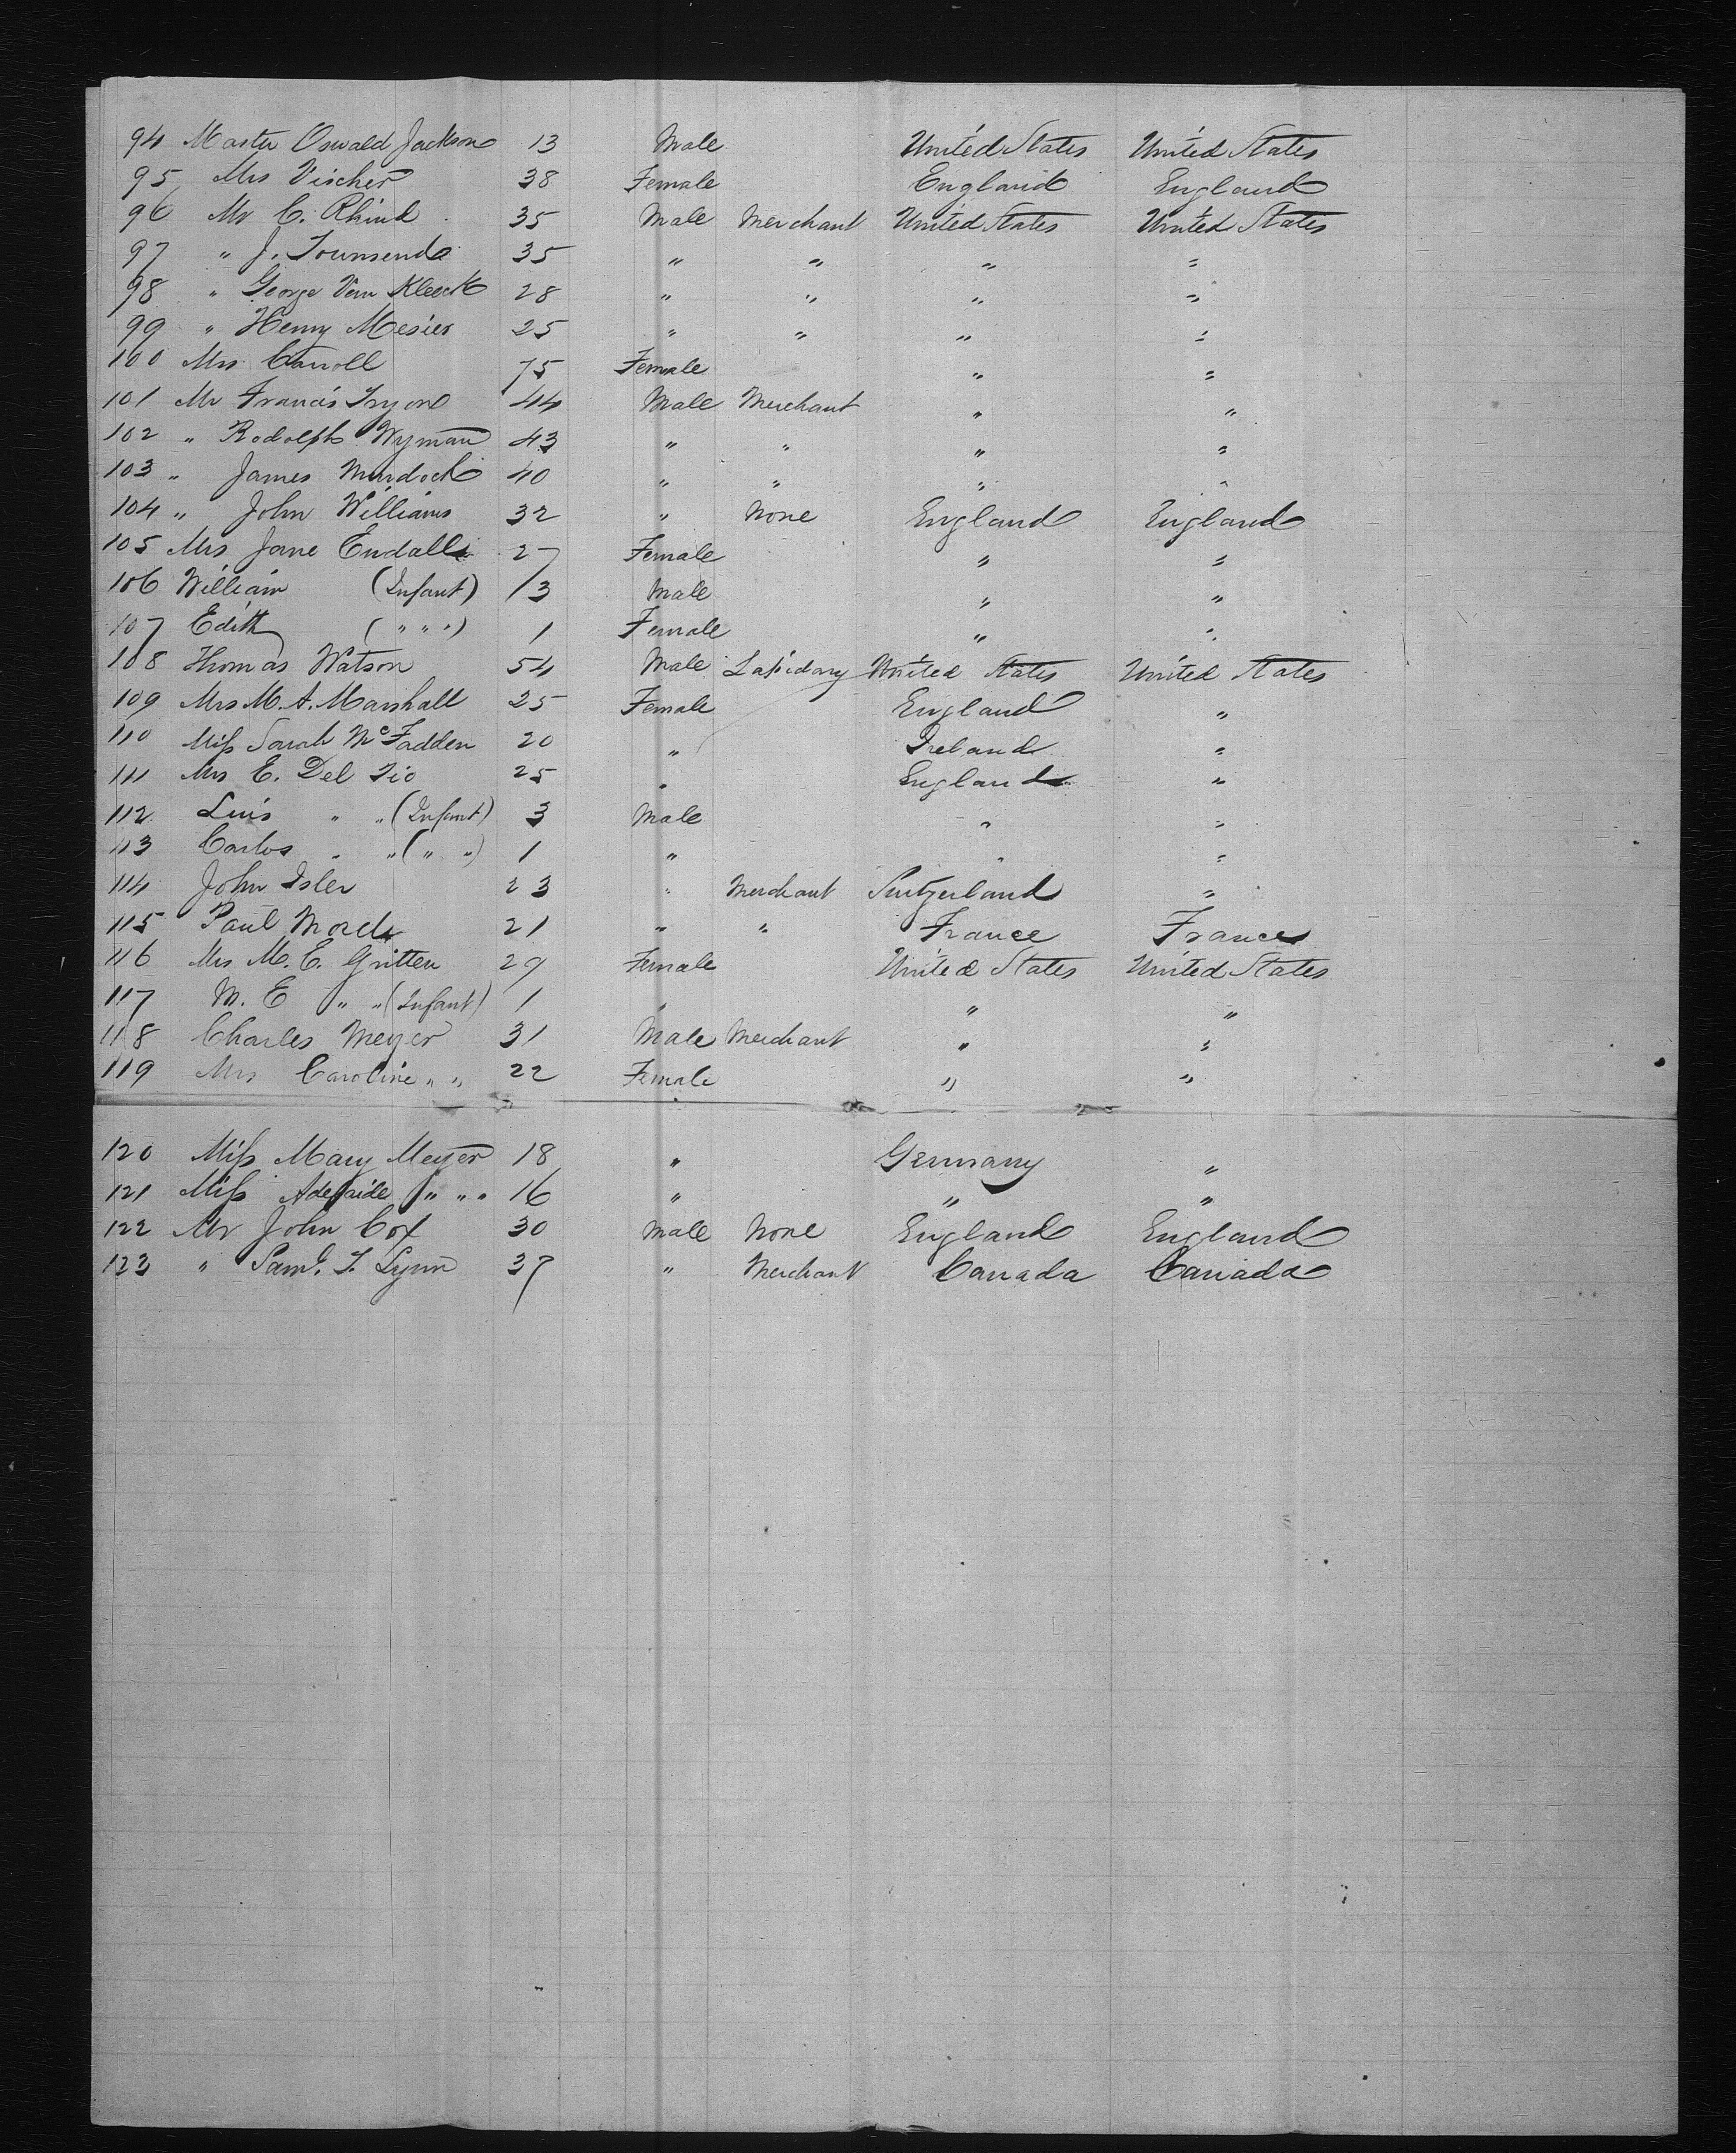 94 Master Oswald Jackson 13 Male United States United States
95 Mrs Vischer 38 Female England England
96 Mr C. Rhind 35 Male Merchant United States United States
97 " J. Townsend 35 " " " "
98 " George Van Kleeck 28 " " " "
99 " Henry Mesier 25 " " " "
100 Mrs Carroll 75 Female " "
101 Mr Francis Tryon 44 Male Merchant " "
102 " Rodolph Wyman 43 " " " "
103 " James Murdock 40 " " " "
104 " John Williams 32 " None England England
105 Mrs Jane Endall 27 Female " "
106 William (Infant) 13 Male " "
107 Edith ( " " ") 1 Female " "
108 Thomas Watson 54 Male Lapidary United States United States
109 Mrs M. A. Marshall 25 Female England "
110 Miss Sarah McFadden 20 " Ireland "
111 Mrs E. Del Tio 25 " England "
112 Luis " " (Infant) 3 Male " "
113 Carlos " " ( " ") 1 " " "
114 John Isler 23 " Merchant Switzerland "
115 Paul 21 " " France France
116 Mrs M. E. Gritten 29 Female United States United States
117 M. E " " (Infant) 1 " " "
118 Charles Meyer 31 Male Merchant " "
119 Mrs Caroline " " 22 Female " "
120 Miss Mary Meyer 18 " Germany "
121 Miss Adelaide " " " 16 " " "
122 Mr John Cox 30 Male None England England
123 " Saml. T. Lynn 37 " Merchant Canada Canada